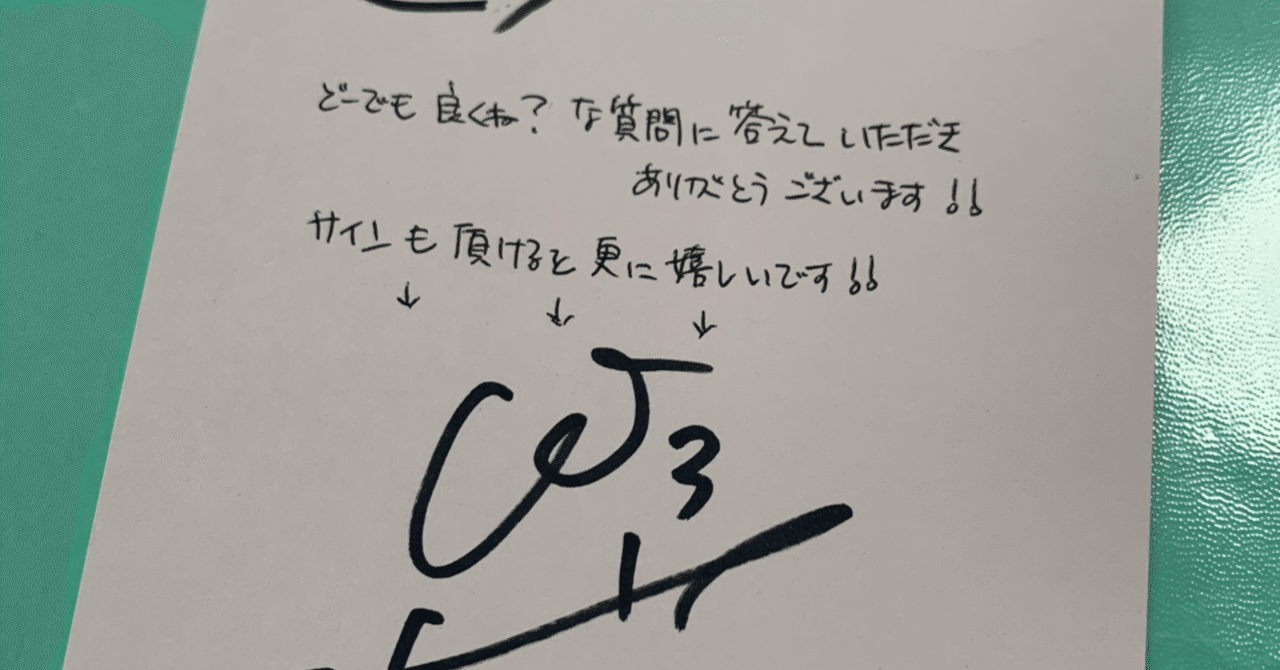 どーでも良くね？な質問に答えていただき
ありがとうございます!!
サインも頂けると更に嬉しいです!!
↓ ↓ ↓